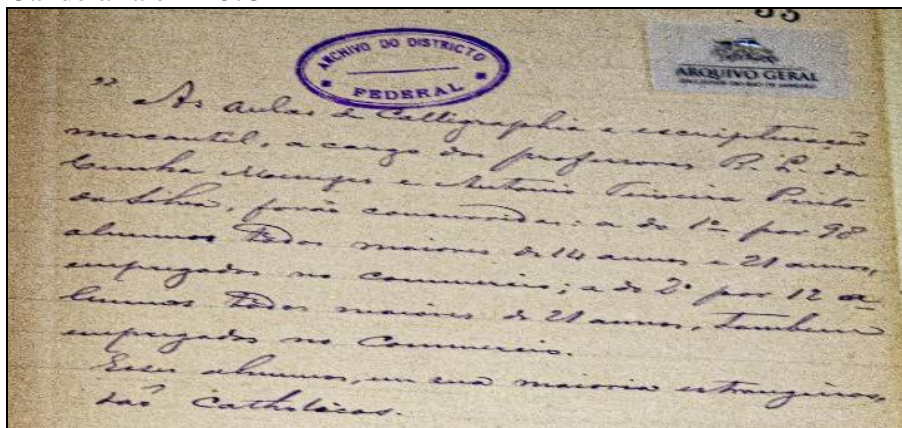 33
ARCHIVO DO DISTRICTO
FEDERAL
ARQUIVO GERAL
" As aulas de Calligraphia e escripturação
mercantil, a cargo dos professores R. L. da
Cunha Menezes e Antonio Teixeira Pinto
da Silva, forão concorridas: a do 1º por 98
alumnos todos maiores de 14 annos e 21 annos,
empregados no commercio; a do 2º por 12 a-
lumnos todos maiores de 21 annos, tambem
empregados no Commercio.
Esses alumnos, em sua maioria estrangeiros,
são Catholicos.